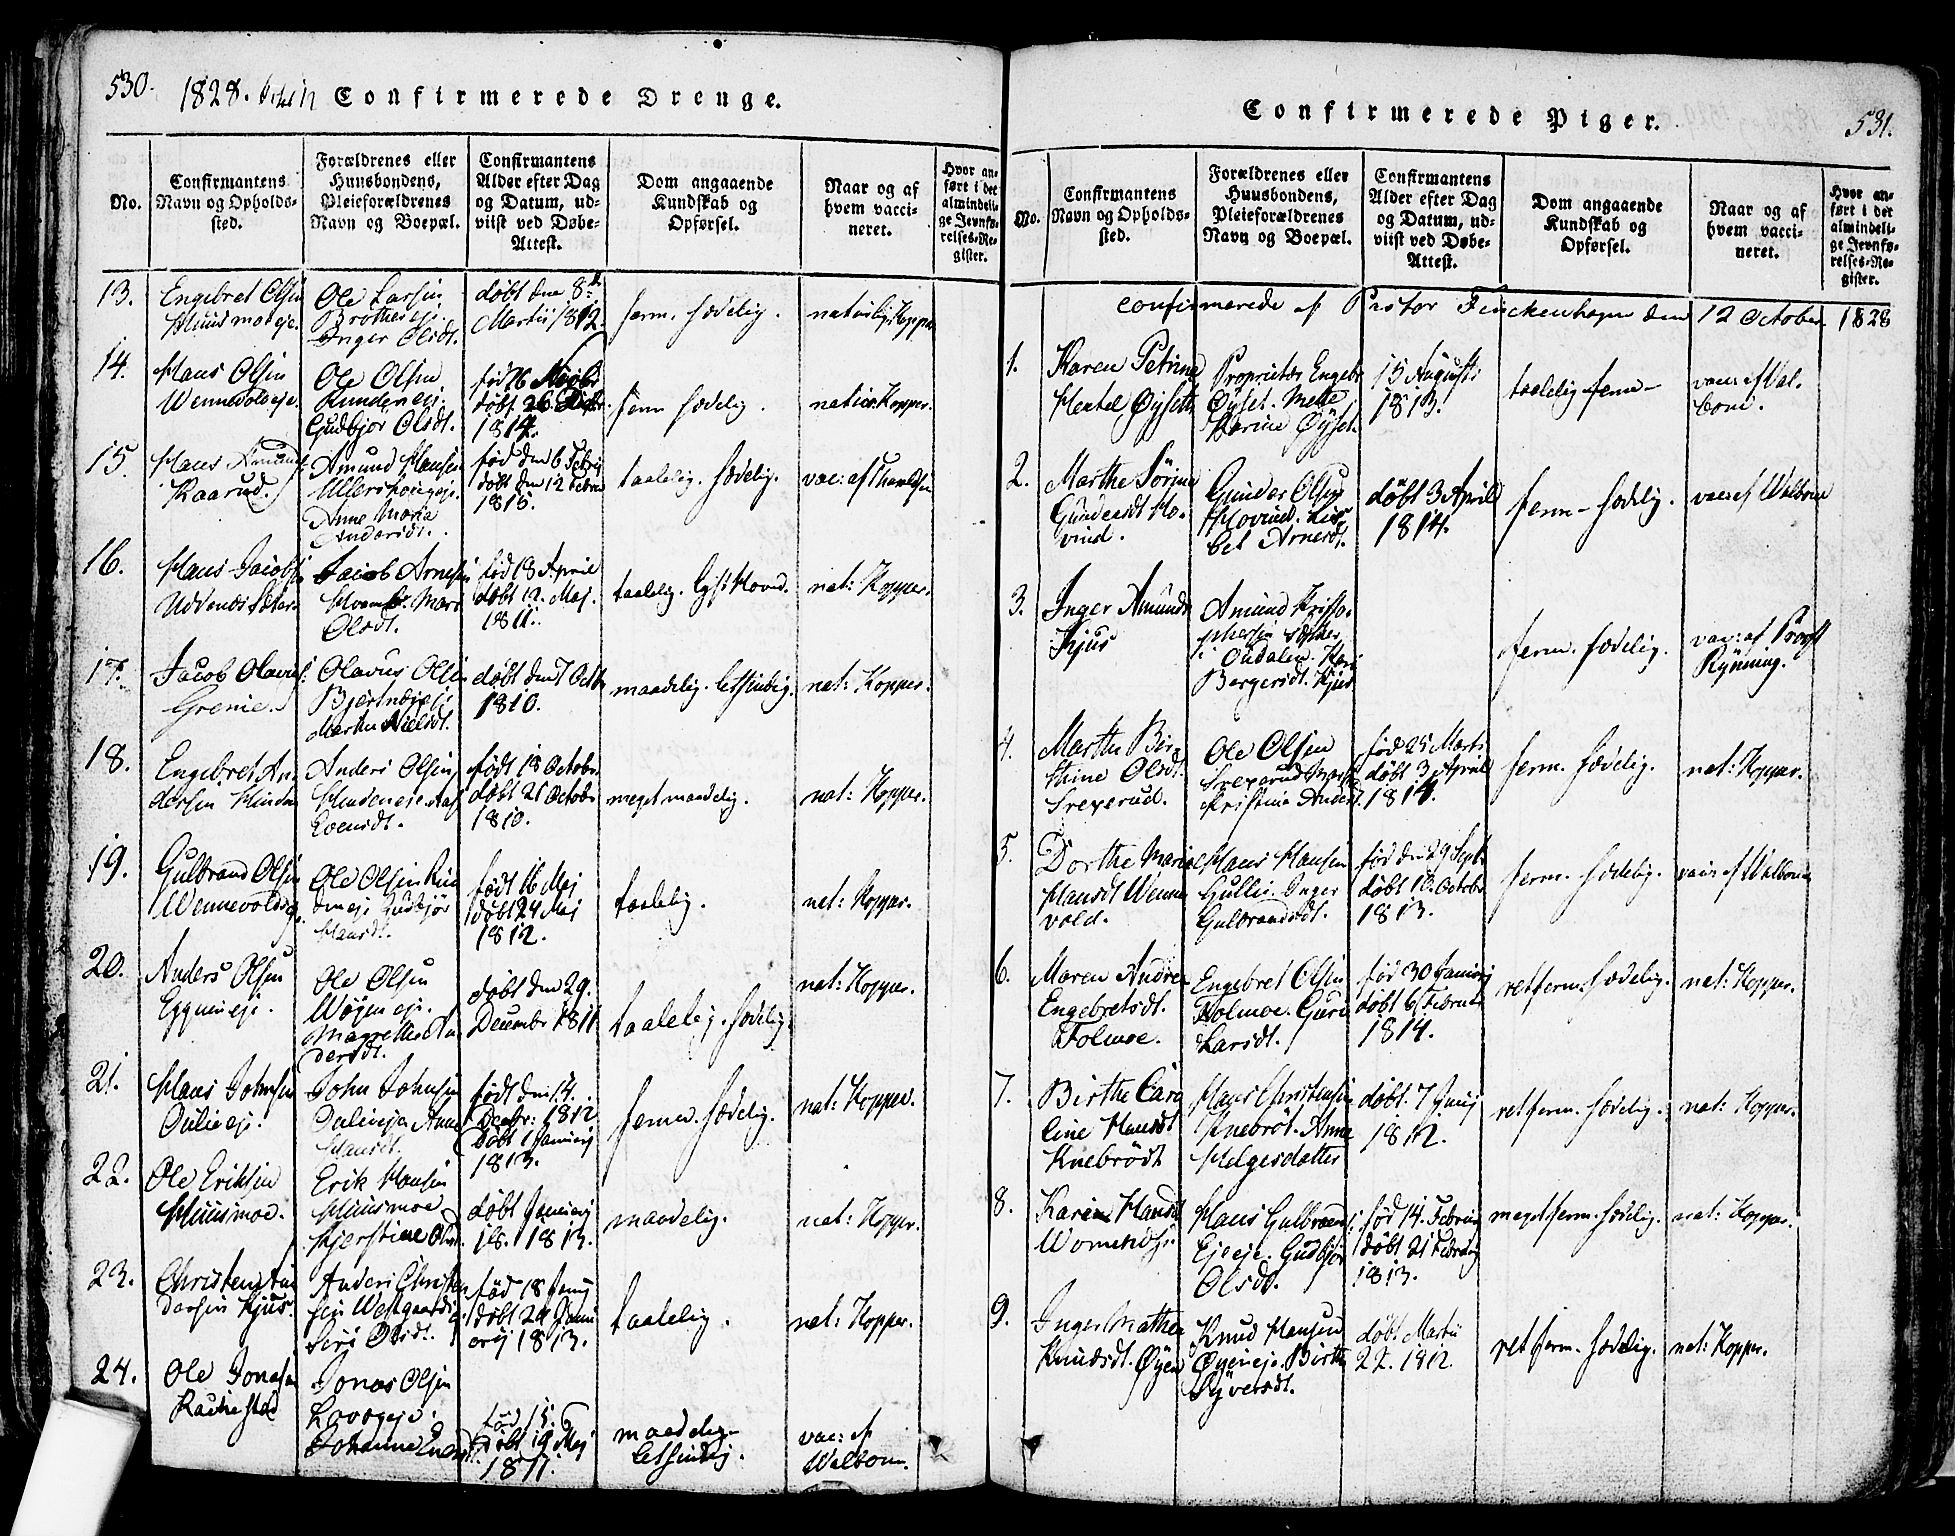 530.
1828.
Confirmerede Drenge.
No.
Confirmantens
Navn og Opholds-
sted.
Forældrenes eller
Huusbondens,
Pleieforældrenes
Navn og Boepæl.
Confirmantens
Alder efter Dag
og Datum, ud-
viist ved Døbe-
Attest.
Dom angaaende
Kundskab og
Opførsel.
Naar og af
hvem vacci-
neret.
Hvor an-
ført i det
almindeli-
ge Jevnfø-
relses-Re-
gister.
13.
Engebret Olsen
Huusmoeeje.
Ole Larsen
Inger Olsdt.
døbt den 8de
Martii 1812.
ferm. sædelig.
naturlig Kopper
14.
Hans Olsen
Wennevoldeje.
Ole Olsen
Rundeneje.
Gudbjør Olsdt.
1814.
ferm sædelig.
natur Kopper.
15.
Hans Amunds:
Kaarud.
Amund Hansen
Anne Maria
Andersdt.
fød den 6 Febr
døbt den 12 Febru
1815.
taalelig. sædelig.
vac: af
16.
Hans Jacobsen
Jacob Arnesen
Olsdt.
fød 18 April
døbt 12. Maj.
1811.
taalelig.
nat: Kopper.
17.
Jacob Olaves:
Grenie.
Olavus Olsen
Marthe Nielsdt.
døbt den 7 Octbr
1810.
maadelig. letsindig.
nat: Kopper.
18.
Engebret An-
dersen
Anders Olsen
Evensdt.
født 18 Octobr.
døbt 21 Octobr
1810.
meget maadelig.
nat: Kopper.
19.
Gulbrand Olsen
Wennevoldseje.
Ole Olsen Run
deneje Gudbjør
Hansdt.
født 16 Maj
døbt 24 Maj
1812.
taalelig.
nat: Kopper.
20.
Anders Olsen
Eggeneje.
Ole Olsen
Wøjeneje.
Magrethe An
dersdt.
døbt den 29.
Decembr 1811
taalelig. sædelig.
nat: Kopper.
21.
Hans Johnsen
Dulieeje.
John Johnsen
Dulieeje Anne
Hansdt.
født den 14.
Decbr: 1812
døbt 1 Januarij
1813.
ferm. sædelig.
nat: Kopper.
22.
Ole Eriksen
Huusmoe.
Erik Hansen
Huusmoe
Kjerstine Olsdt
døbt Januarij
18. 1813.
maadelig.
nat: Kopper.
23.
Christen An
dersen Kjus.
Anders Christen
sen Westgaards
Siri Olsdt.
fød 18 Janu
døbt 24 Janu
arij 1813.
taalelig.
nat: Kopper.
24.
Ole Jonasen
Jonas Olsen
Johanne
fød 15.
døbt 19 Maj
1811.
maadelig-
letsindig.
vac: af
Walbom.
Confirmerede Piger.
531.
No.
Confirmantens
Navn og Opholds-
sted.
Forældrenes eller
Huusbondens,
Pleieforældrenes
Navn og Boepæl.
Confirmantens
Alder efter Dag
og Datum, ud-
viist ved Døbe-
Attest.
Dom angaaende
Kundskab og
Opførsel.
Naar og af
hvem vacci-
neret.
Hvor an-
ført i det
almindeli-
ge Jevnfø-
relses-Re-
gister.
confirmerede af Pastor Finckenhagen den 12 October 1828
1.
Karen Petrine
Hentel Øysett
Proprietær Engebr
Øyset. Mette
Karine Øyset.
15 Augusti
1813.
taalelig ferm-
vac: af Wal-
bom.
2.
Marthe Sørine
Gundersdt Ho-
vind.
Gunder Olsen
Hovind. Lis-
bet Arnesdt.
døbt 3 April
1814.
ferm - sædelig.
vac: af Walbom
3.
Inger Amunds
Kjus
Amund Kristo-
phersen
i Oudalen. Kari
Bergersdt. Kjus
ferm. sædelig.
vac: af Provst
Rynning.
4.
Marthe Bir-
thine Olsdt.
Srexerud.
Ole Olsen
Srexerud
Kristine Andersdt.
fød 25 Marts
døbt 3 April
1814.
ferm. sædelig.
nat: Kopper.
5.
Dorthe Maria
Hansdt Wenne
vold.
Hans Hansen
Gullei. Inger
Gulbrandsdt.
fød den 29 Septbr
døbt 10. Octobr
1813.
ferm. sædelig.
vac: af Walbom
6.
Maren Andrea
Engebretsdt.
Folmoe.
Engebret Olsen
Folmoe. Guri
Larsdt.
fød 30 Januarj
døbt 6 Februar
1814.
ret ferm. sædelig.
nat: Kopper.
7.
Birthe Caro
line Hansdt
Knebrödt
Hans Christensen
Knebröt. Anne
Helgesdatter
døbt. 7 Junij
1812.
ret ferm. sædelig.
nat: Kopper.
8.
Karen Hansdt
Hans Gulbrans:
Ejeeje. Gudbjør
Olsdt.
fød 14. Februar
døbt 21 Februar
1813.
meget ferm. sædelig.
nat: Kopper.
9.
Inger Mathea
Knudsdt. Øyen
Knud Hansen
Øyeneje. Birthe
Syversdt.
døbt Martii
22. 1812.
ret ferm. sædelig.
nat: Kopper.